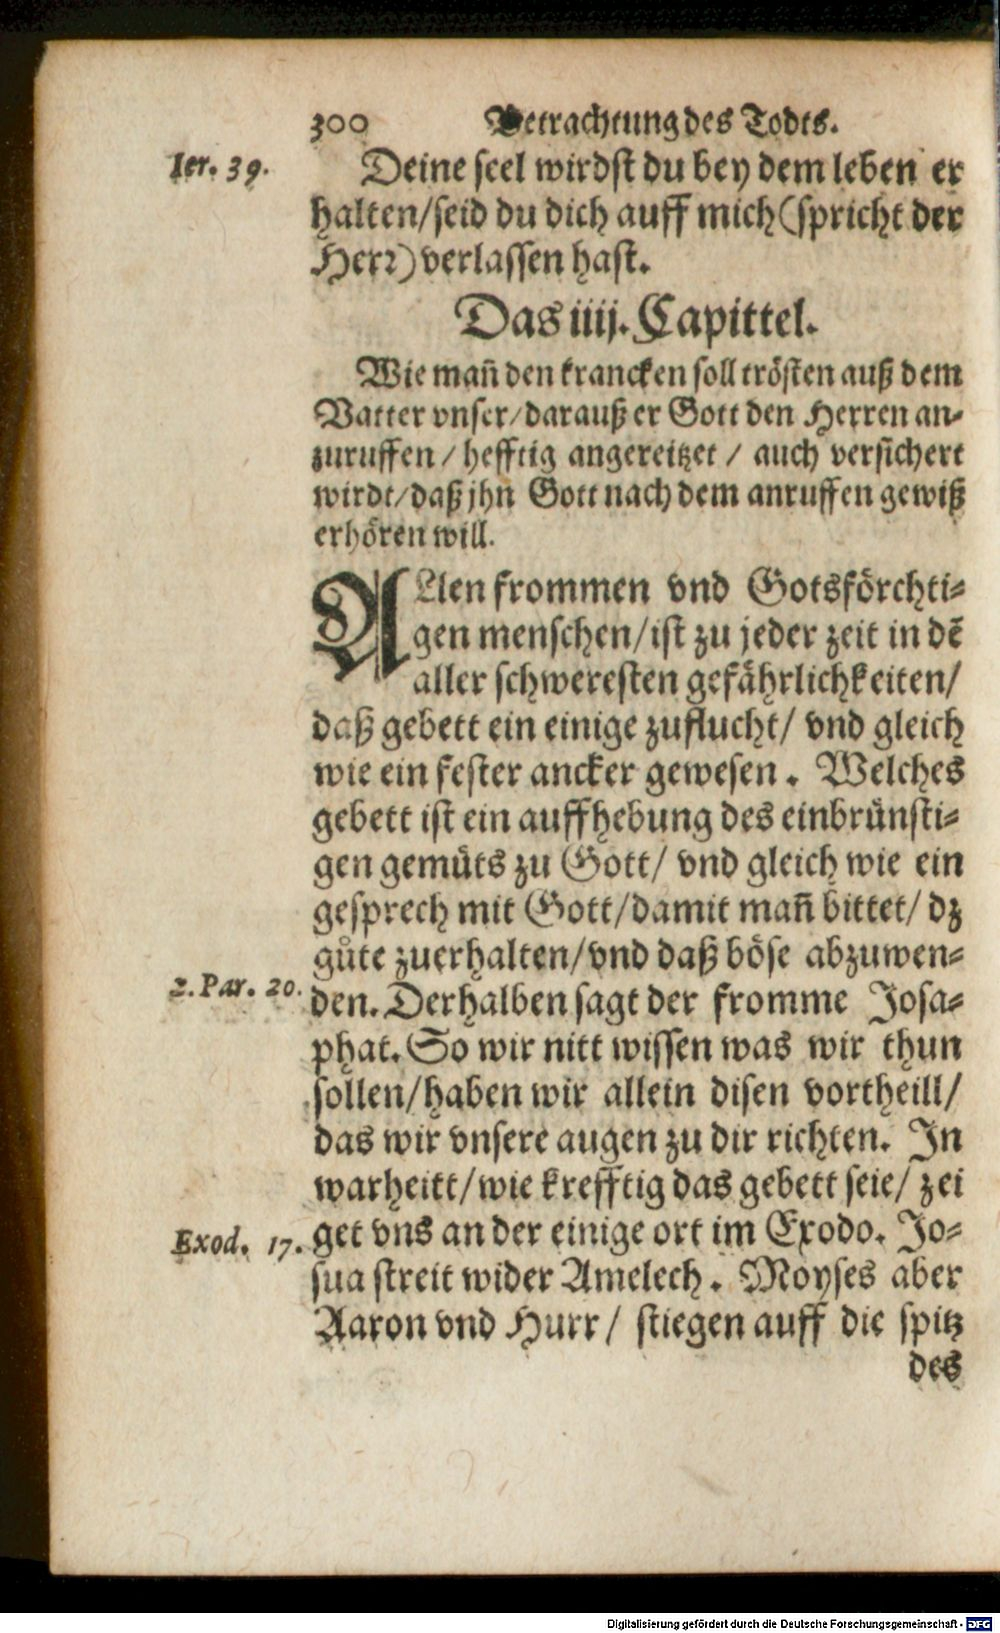 300 Betrachtung des Todts.
Ier. 39. Deine seel wirdst du bey dem leben er
halten/seid du dich auff mich (spricht der
Herr) verlassen hast.
Das iiij. Capittel.
Wie man̄ den krancken soll trösten auß dem
Vatter vnser/darauß er Gott den Herren an-
zuruffen/ hefftig angereitzet / auch versichert
wirdt/daß jhn Gott nach dem anruffen gewiß
erhören will.
ALlen frommen vnd Gotsförchti-
gen menschen/ist zu jeder zeit in dē
aller schweresten gefährlichkeiten/
daß gebett ein einige zuflucht/ vnd gleich
wie ein fester ancker gewesen. Welches
gebett ist ein auffhebung des einbrünsti-
gen gemüts zu Gott/ vnd gleich wie ein
gesprech mit Gott/damit man̄ bittet/ dz
gůte zuerhalten/vnd daß böse abzuwen-
2. Par. 20. den. Derhalben sagt der fromme Josa-
phat. So wir nitt wissen was wir thun
sollen/haben wir allein disen vortheill/
das wir vnsere augen zu dir richten. In
warheitt/wie krefftig das gebett seie/ zei
Exod. 17. get vns an der einige ort im Exodo. Jo-
sua streit wider Amelech. Moyses aber
Aaron vnd Hurr/ stiegen auff die spitz
des
Digitalisierung gefördert durch die Deutsche Forschungsgemeinschaft - DFG